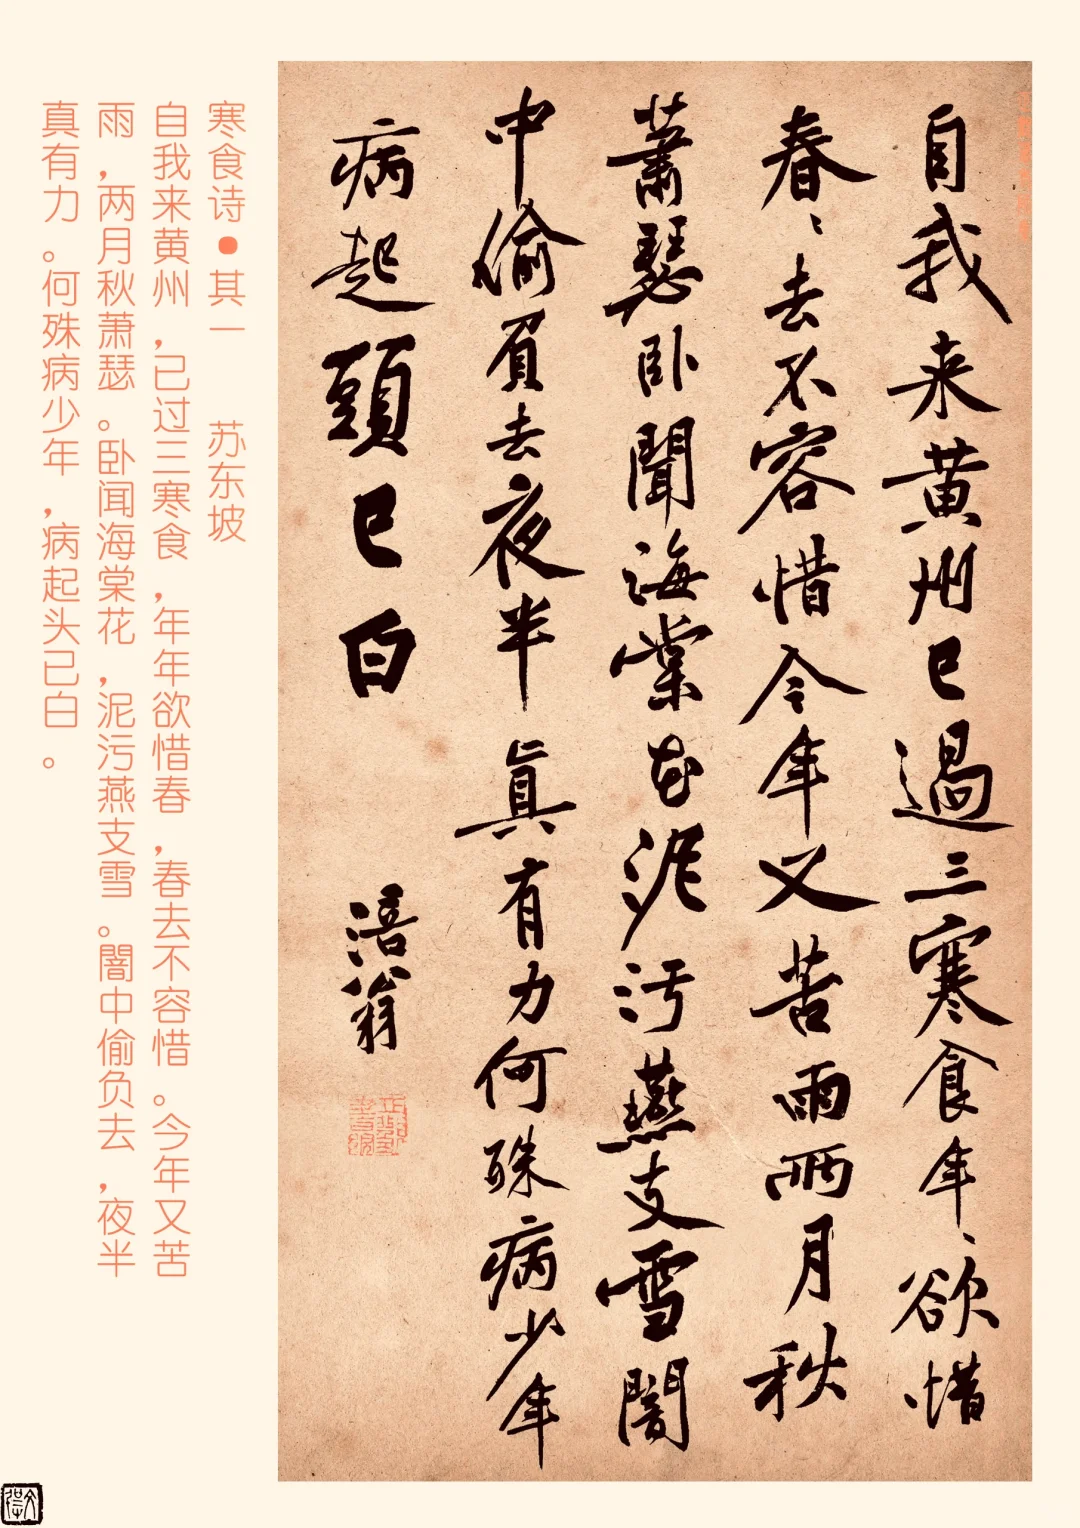 自我来黄州已過三寒食年〻欲惜
春〻去不容惜今年又苦雨兩月秋
蕭瑟卧聞海棠花泥汚燕支雪闇
中偷負去夜半真有力何殊病少年
病起頭已白
涪翁
寒食诗●其一 苏东坡
自我来黄州，已过三寒食，年年欲惜春，春去不容惜。今年又苦
雨，两月秋萧瑟。卧闻海棠花，泥污燕支雪。闇中偷负去，夜半
真有力。何殊病少年，病起头已白。